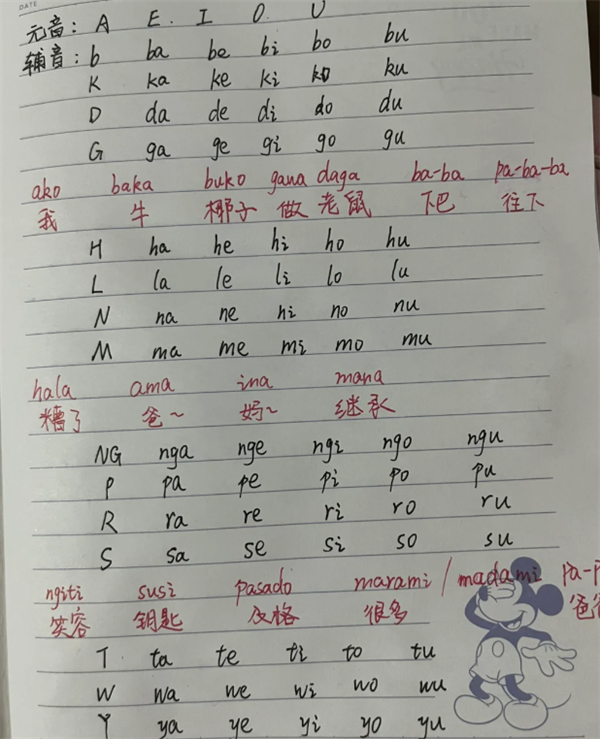 DATE
元音: A E. I O. U
辅音: b ba be bi bo bu
K ka ke ki ko ku
D da de di do du
G ga ge gi go gu
ako baka buko gana daga ba-ba pa-ba-ba
我 牛 椰子 做 老鼠 下巴 往下
H ha he hi ho hu
L la le li lo lu
N na ne hi no nu
M ma me mi mo mu
hala ama ina mana
糟了 爸~ 妈~ 继承
NG nga nge ngi ngo ngu
P pa pe pi po pu
R ra re ri ro ru
S sa se si so su
ngiti susi pasado marami / madami pa-p
笑容 钥匙 及格 很多 爸
T ta te ti to tu
W wa we wi wo wu
Y ya ye yi yo yu